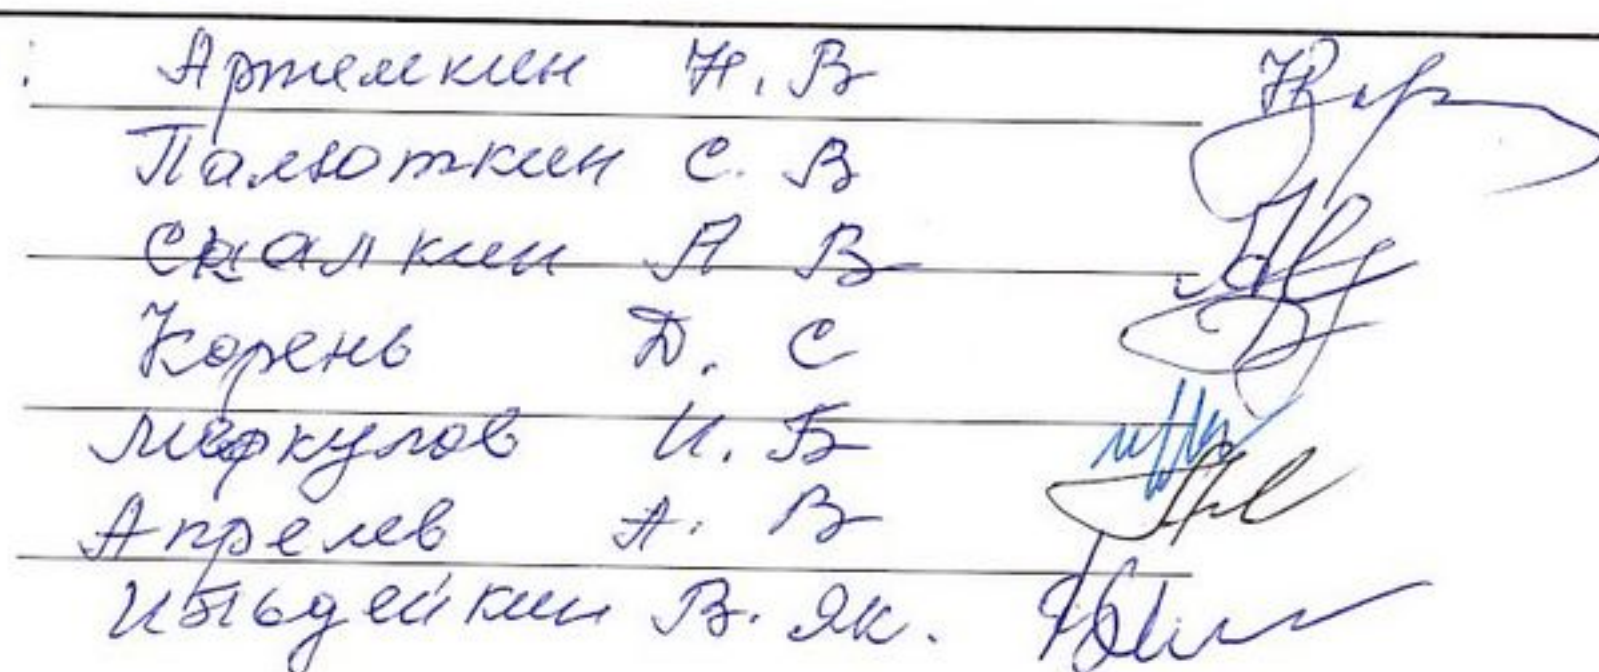 Артемкин Н. В
Палюткин С. В
Скалкин А В
Корень Д. С
Меркулов И. Б
Апрелев А. В
В. Як.